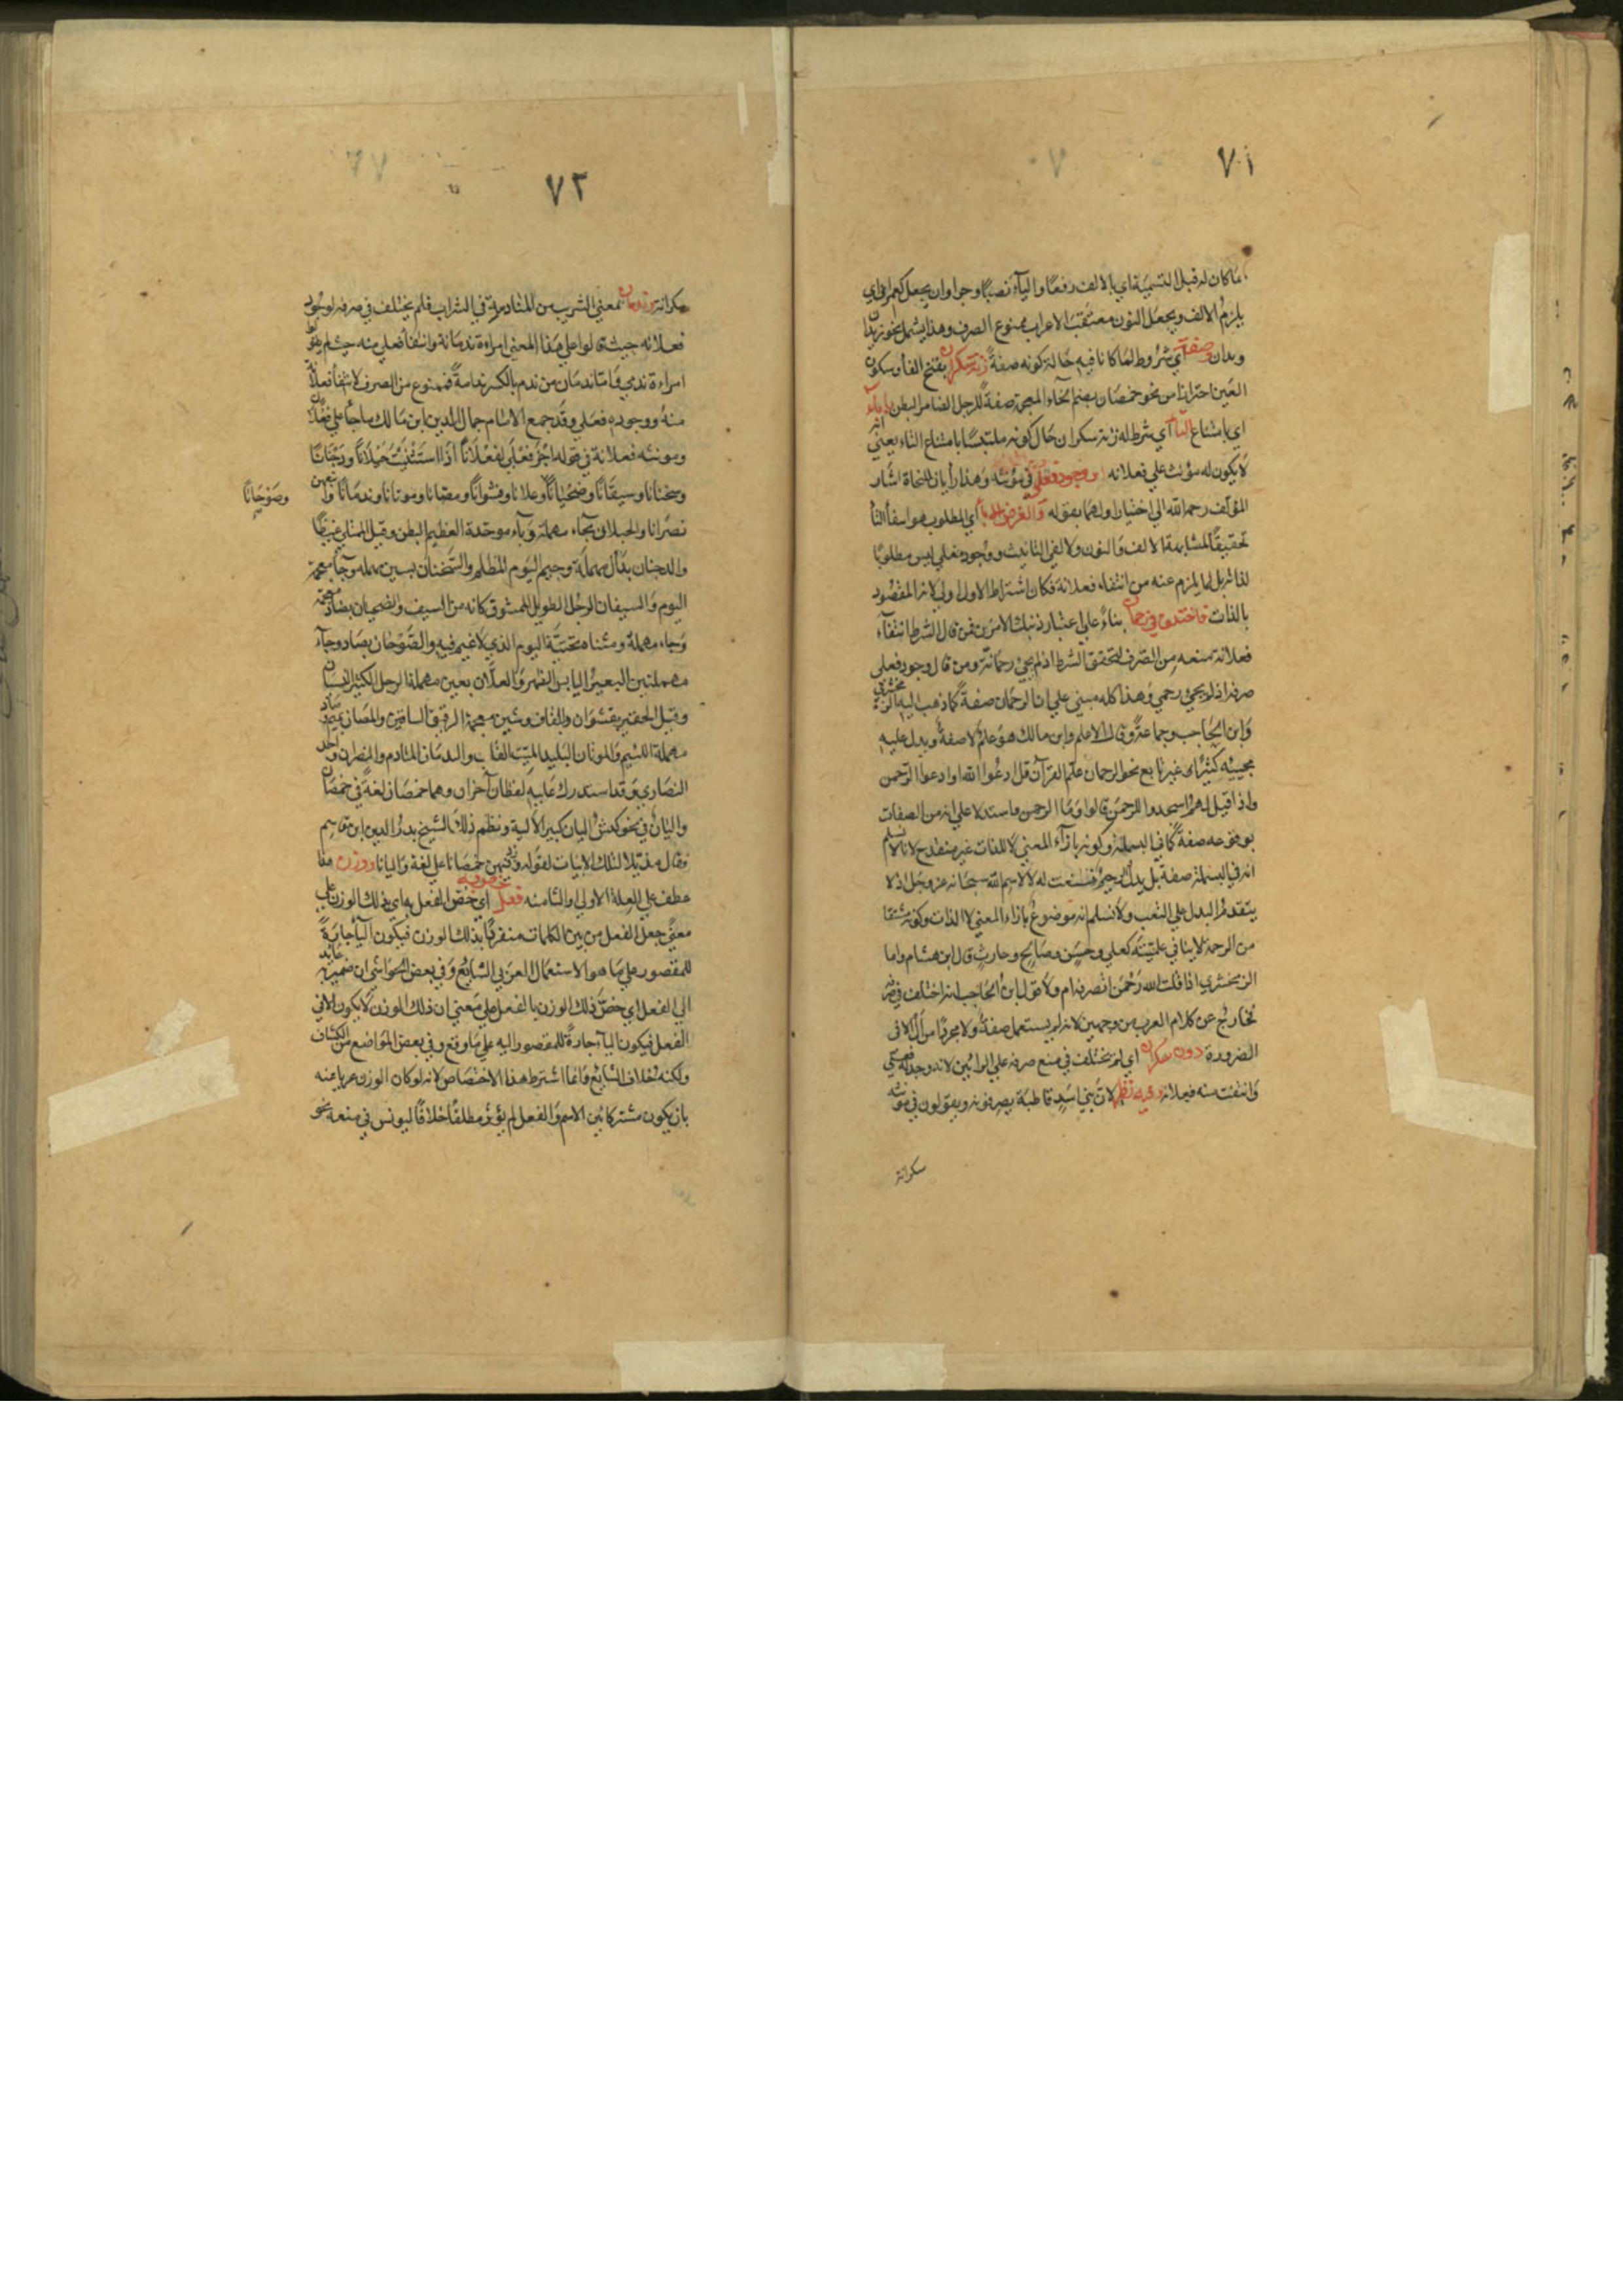 ٧١
ما كان له قبل التسمية اي بالالف رفعًا واليآء نصبًا وجرا وان يجعل كعمران اي
يلزم الالف ويجعل النون معتقب الاعراب ممنوع الصرف وهذا يشمل نحو زيدان
وبدان صفة اي شروط لما كانا فيه حالة كونه صفةً زنة سكران بفتح الفا وسكون
العين احترازا من نحو خمصان بضم الخآء المعجمة صفةً للرجل الضامر البطن
اي بامتناع التا اي شرط له زنة سكران حال كونه ملتبسًا بامتناع التاء يعني انه
لا يكون له مؤنث علي فعلانه او وجود فعلي في مؤنثه وهذا رأيان للنحاة اشار
المؤلف رحمه الله الي اختيار اولهما بقوله والغرض اي المطلوب هو انتفأ التأ
تحقيقًا لمشابهة الالف والنون ولالفي التانيث ووجود فعلي ليس مطلوبًا
لذاته بل لما يلزم عنه من انتفاء فعلانة فكان اشتراط الاول اولي لانه المقصود
بالذات فاختلف في رحمان بناءً علي اعتبار ذينك الامرين فمن قال الشرط انتفآء
فعلانة منعه من الصرف لتحقق الشرط اذ لم يجئ رحمانة ومن قال وجود فعلي
صرفه اذ لم يجئ رحمي وهذا كله مبني علي ان الرحمان صفةً كما ذهب اليه الزمخشري
وابن الحاجب وجماعة وقال الاعلم وابن مالك هو علم لا صفة ويدل عليه
مجيئه كثيرًا غير تابع نحو الرحمان علم القرآن قل ادعوا الله او ادعوا الرحمن
واذا قيل لهم اسجدوا للرحمن قالوا وما الرحمن واستدلا علي انه من الصفات
بوقوعه صفةً كما في البسملة وكونه بازآء المعني لا للذات غير منقدح لانا لا نسلم
انه في البسملة صفة بل بدل والرحيم نعت له لا لاسم الله سبحانه عز وجل اذ لا
يتقدم البدل علي النعت ولا نسلم انه موضوع بازاء المعني لا الذات وكونه مشتقا
من الرحمة لا ينافي علميته كعلي وحسن وصالح وحارث قال ابن هشام واما
الزمخشري اذا قلت الله رحمن اتصرفه ام لا وقول ابن الحاجب انه اختلف في صرفه
خارج عن كلام العرب من وجهين لانه لم يستعمل صفةً ولا مجردًا من ال الا في
الضرورة دون سكران اي لم يختلف في منع صرفه علي الرائين لانه وجد له فعلي
وانتفت منه فعلانه لان بني اسد قاطبة يصرفونه ويقولون في مؤنثه
سكرانة
٧٢
سكرانة وندمان بمعني الشريب من المنادمة في الشراب فلم يختلف في صرفه لوجود
فعلانه حيث قالوا علي هذا المعني امراءة ندمانة وانتفأ فعلي منه حيث لم يقولوا
امراءة ندمي فاما ندمان من ندم بالكسر ندامةً فممنوع من الصرف لانتفأ فعلانة
منه ووجود فعلي وقد جمع الامام جمال الدين ابن مالك ما جأ علي فعلان
ومونثه فعلانة في قوله اجز فعلي لفعلانا اذا استثنيت حبلانًا ودجنانًا
وسخنانًا وسيفانًا وضحيانًا وعلانا وقشوانًا ومصانا وموتانا وندمانا واتبعهن
وصوجانًا
نصرانا والحبلان بحآء مهملة وبآء موحدة العظيم البطن وقيل الممتلي غيظًا
والدجنان بدال مهملة وجيم اليوم المظلم والسخنان بسين مهمله وخآ معجمة
اليوم والسيفان الرجل الطويل الممشوق كانه من السيف والضحيان بضاد معجمة
وحاء مهملة ومثناه تحتية اليوم الذي لا غيم فيه والصوجان بصاد وجآء
مهملتين البعير اليابس الظهر والعلان بعين مهملة الرجل الكثير النسيان
وقيل الحقير وقشوان والقاف وشين معجمة الرقيق الساقين والمصان بصاد
مهملة اللئيم والموتان البليد الميت القلب والندمان المنادم والنصران واحد
النصاري وقد استدرك عليه لفظان آخران وهما خمصان لغةً في خمصان
واليان في نحو كبش اليان كبير الالية ونظم ذلك الشيخ بدر الدين ابن قاسم
فقال مذيلا لتلك الابيات بقوله وزد فيهن خمصانا علي لغة واليانا ووزن هذا
عطف علي العلة الاولي والثامنه فعل اي خص الفعل به اي بذلك الوزن علي
معني جعل الفعل من بين الكلمات منفردًا بذلك الوزن فيكون اليآ جارةً
للمقصور علي ما هو الاستعمال العربي الشايع وفي بعض الحواشي ان ضميره عايد
الي الفعل اي خص ذلك الوزن بالفعل علي معني ان ذلك الوزن لا يكون الا في
الفعل فيكون البآ جارةً للمقصور اليه علي ما وقع في بعض المواضع من الكشاف
ولكنه خلاف الشائع وانما اشترط هذا الاختصاص لانه لو كان الوزن عربا عنه
بان يكون مشتركا بين الاسم والفعل لم يؤثر مطلقًا خلافًا ليونس في منعه نحو